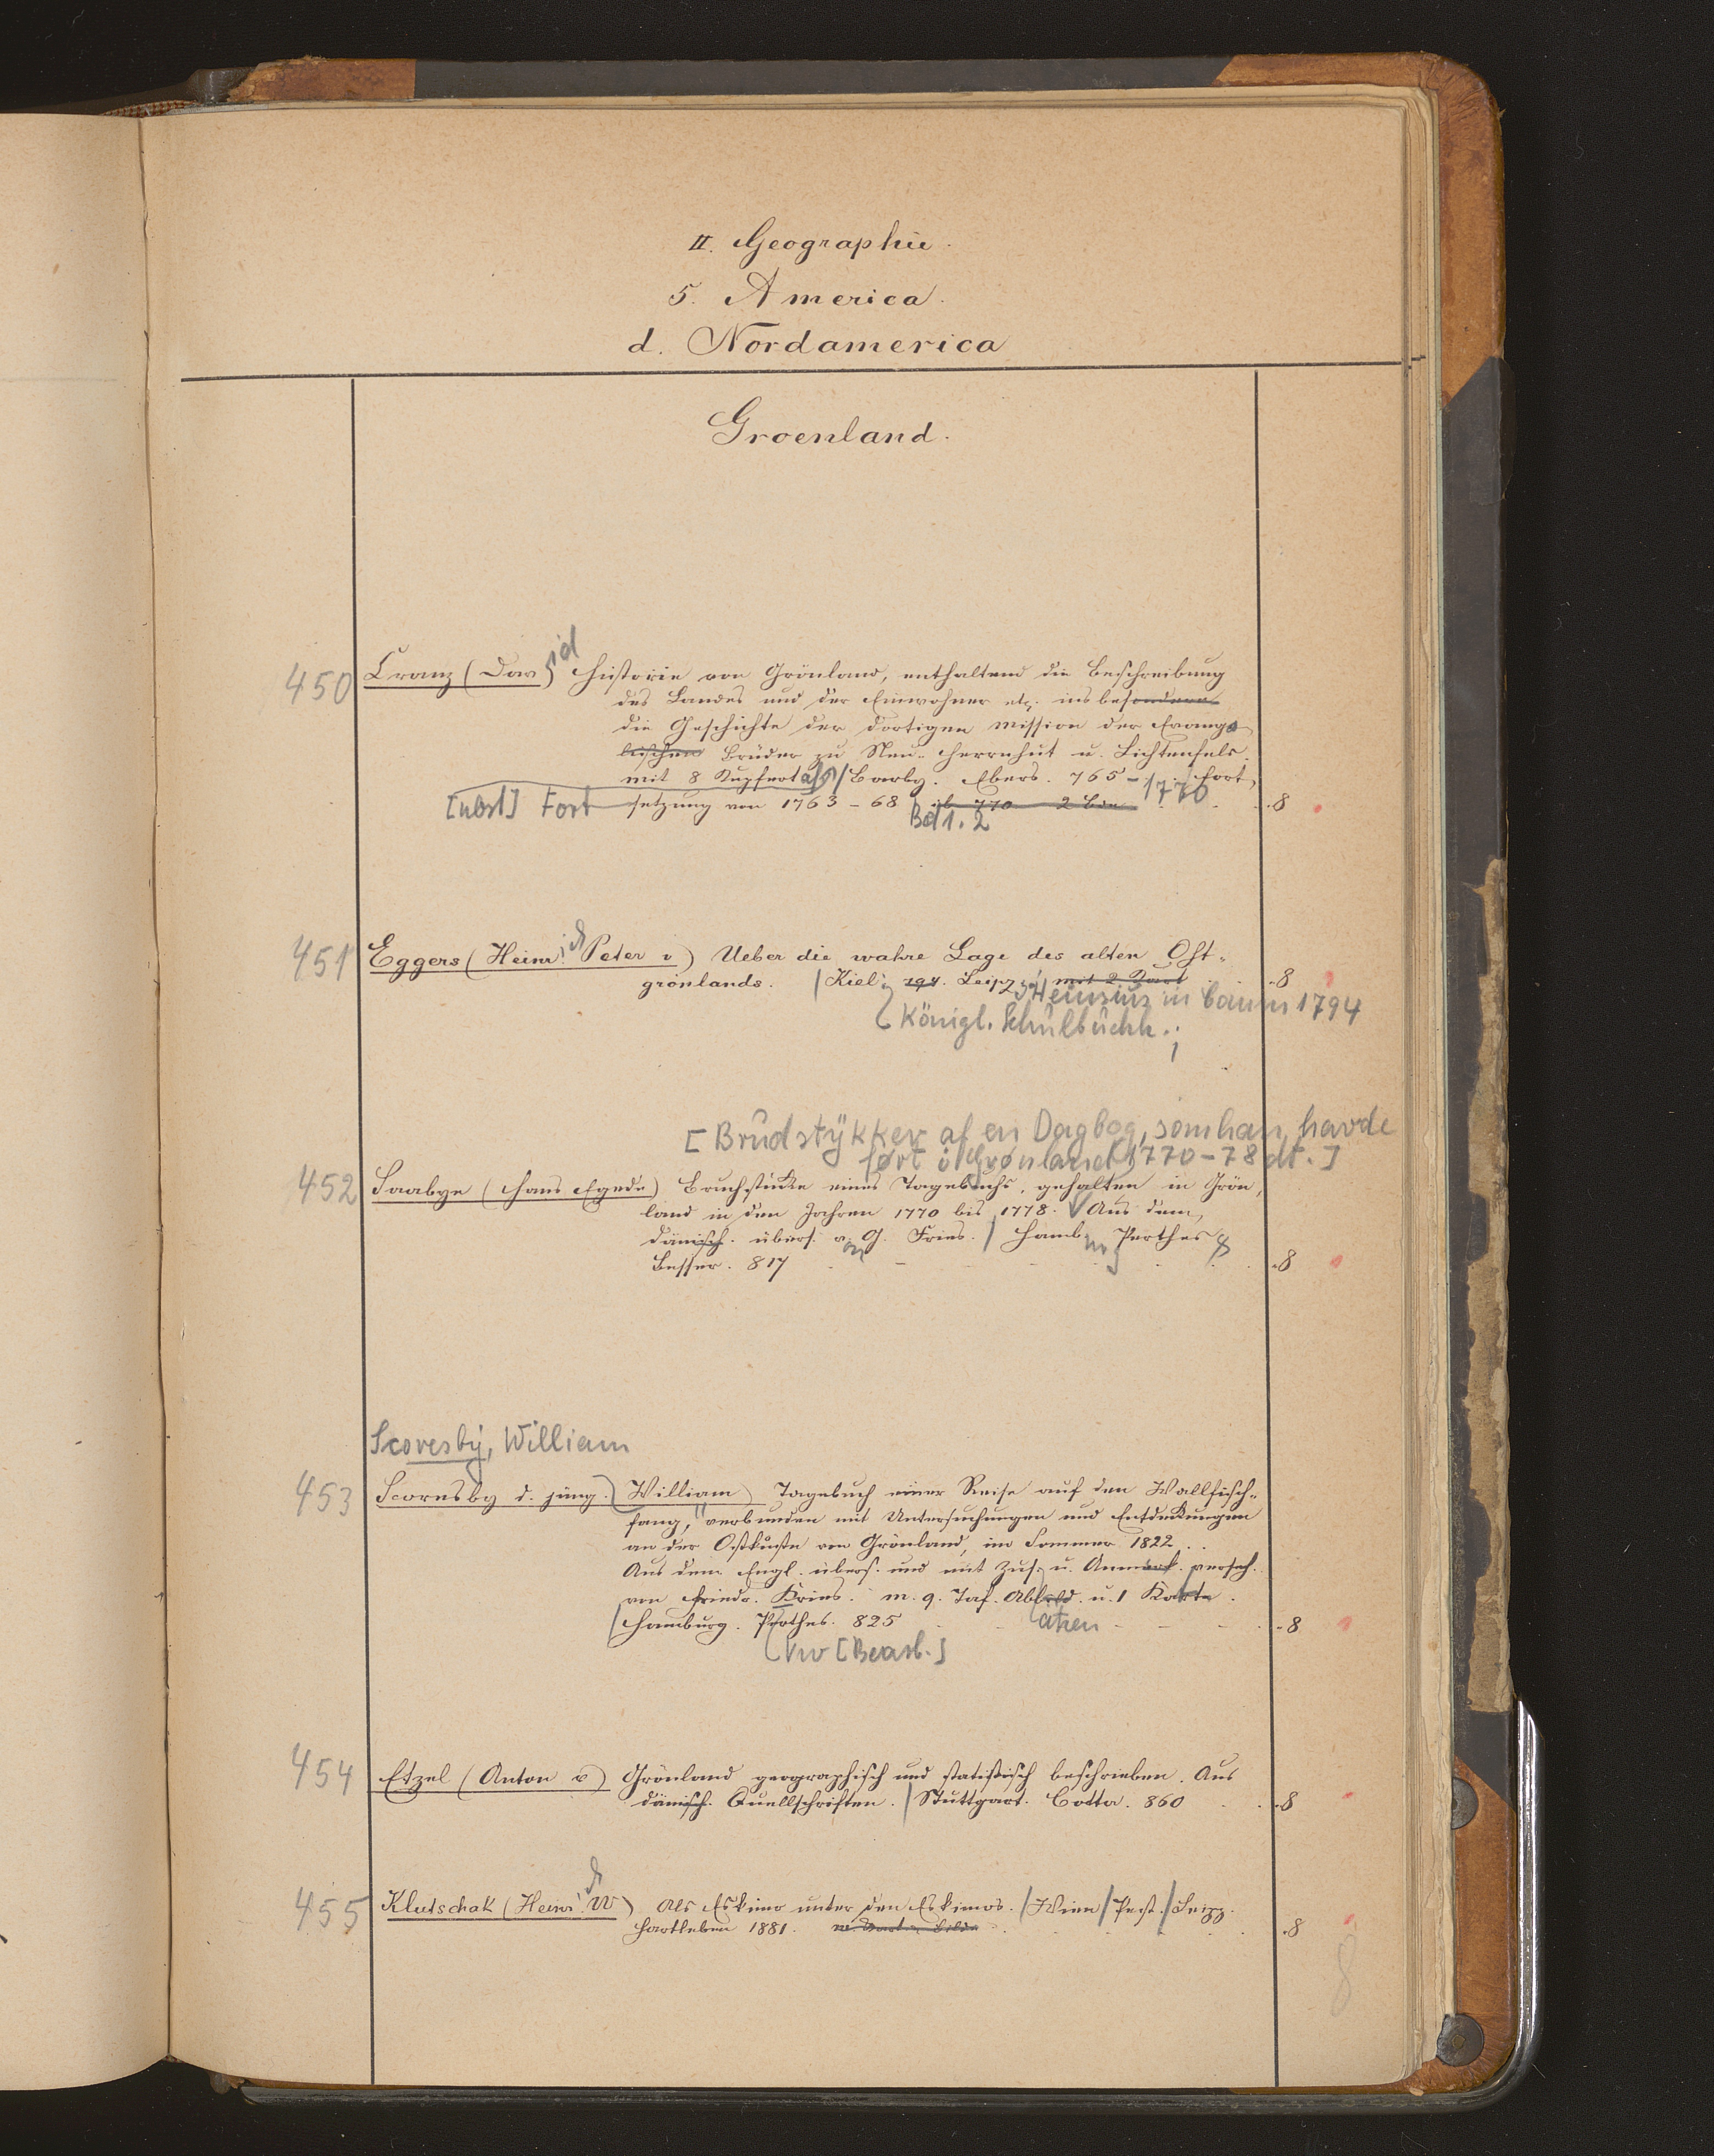 II. Geographie.
5. America.
d. Nordamerica
Groenland.
450 Cranz (David) Historie von Grönland, enthaltend die Beschreibung
des Landes und der Einwohner etc. insbesondere
die Geschichte der dortigen Mission der Evange
lischen Brüder zu Neu-Herrnhut u. Lichtenfels.
mit 8 Kupfertafn / Barby. Ebers. 765 - 1770 / Fort,
[nbst] Fort setzung von 1763-68 ib 770 2 Bde . . 8
Bd 1.2
451 Eggers (Heinrich Peter v) Ueber die wahre Lage des alten Ost-
grönlands. / Kiel; 794. Leipzg: Heinsius in Comm 1794 mit 2 Kart . 8
Königl. Schulbuchh.;
[Brudstykker af en Dagbog, som han havde
ført i Grønland 1770-78 dt.]
452 Saabye (Hans Egede) Bruchstücke eines Tagebuchs, gehalten in Grön,
land in den Jahren 1770 bis 1778. Aus dem
dänisch. übers. von G. Fries. / Hamb Perthes &
Besser. 817 . . 8
Scoresby, William
453 Scoresby d. jüng. William) Tagebuch einer Reise auf den Wallfisch-
fang, verbunden mit Untersuchungen und Entdekungen
an der Ostküste von Grönland, im Sommer 1822 . .
Aus dem Engl. übers. und mit Zus. u. Anmerk. verseh.
von Friedr. Kries. m. 9. Taf. Abbild. u. 1 Karte.
/ Hamburg. Perthes. 825 . . 8
[Bearb.]
454 Etzel (Anton v) Grönland geographisch und statistisch beschrieben. Aus
dänisch. Quellschriften. / Stuttgart. Cotta. 860 . . 8
455 Klutschak (Heinrich W) Als Eskimo unter den Eskimos. / Wien / Pest. / Leipz.
Hartleben 1881. m. Kart u. Bilde . . 8
8